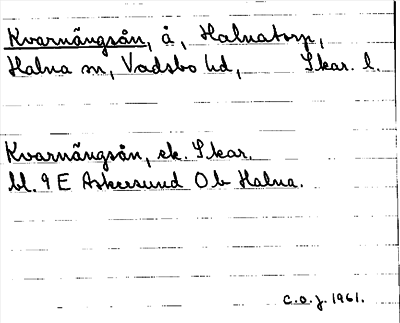 Kvarnängsån, å, Halnatorp,
Halna sn, Vadsbo hd, Skar. l.
Kvarnängsån, ek. Skar.
bl. 9 E Askersund Ob Halna.
C.O.J. 1961.